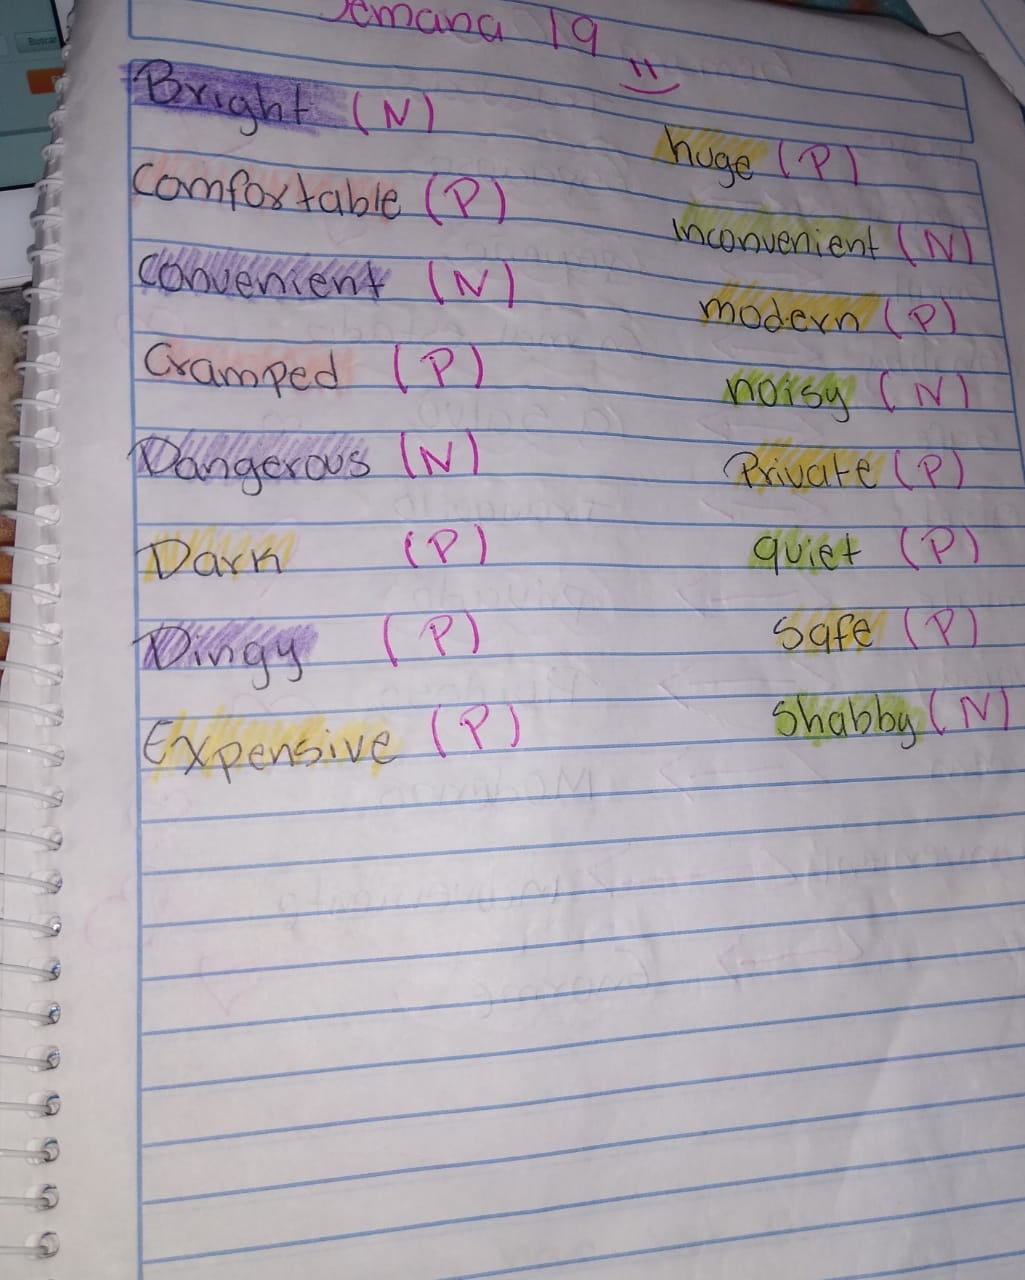 Semana 19
Bright (N)
Comfortable (P)
Convenient (N)
Cramped (P)
Dangerous (N)
Dark (P)
Dingy (P)
Expensive (P)
huge (P)
inconvenient (N)
modern (P)
noisy (N)
Private (P)
quiet (P)
Safe (P)
Shabby (N)